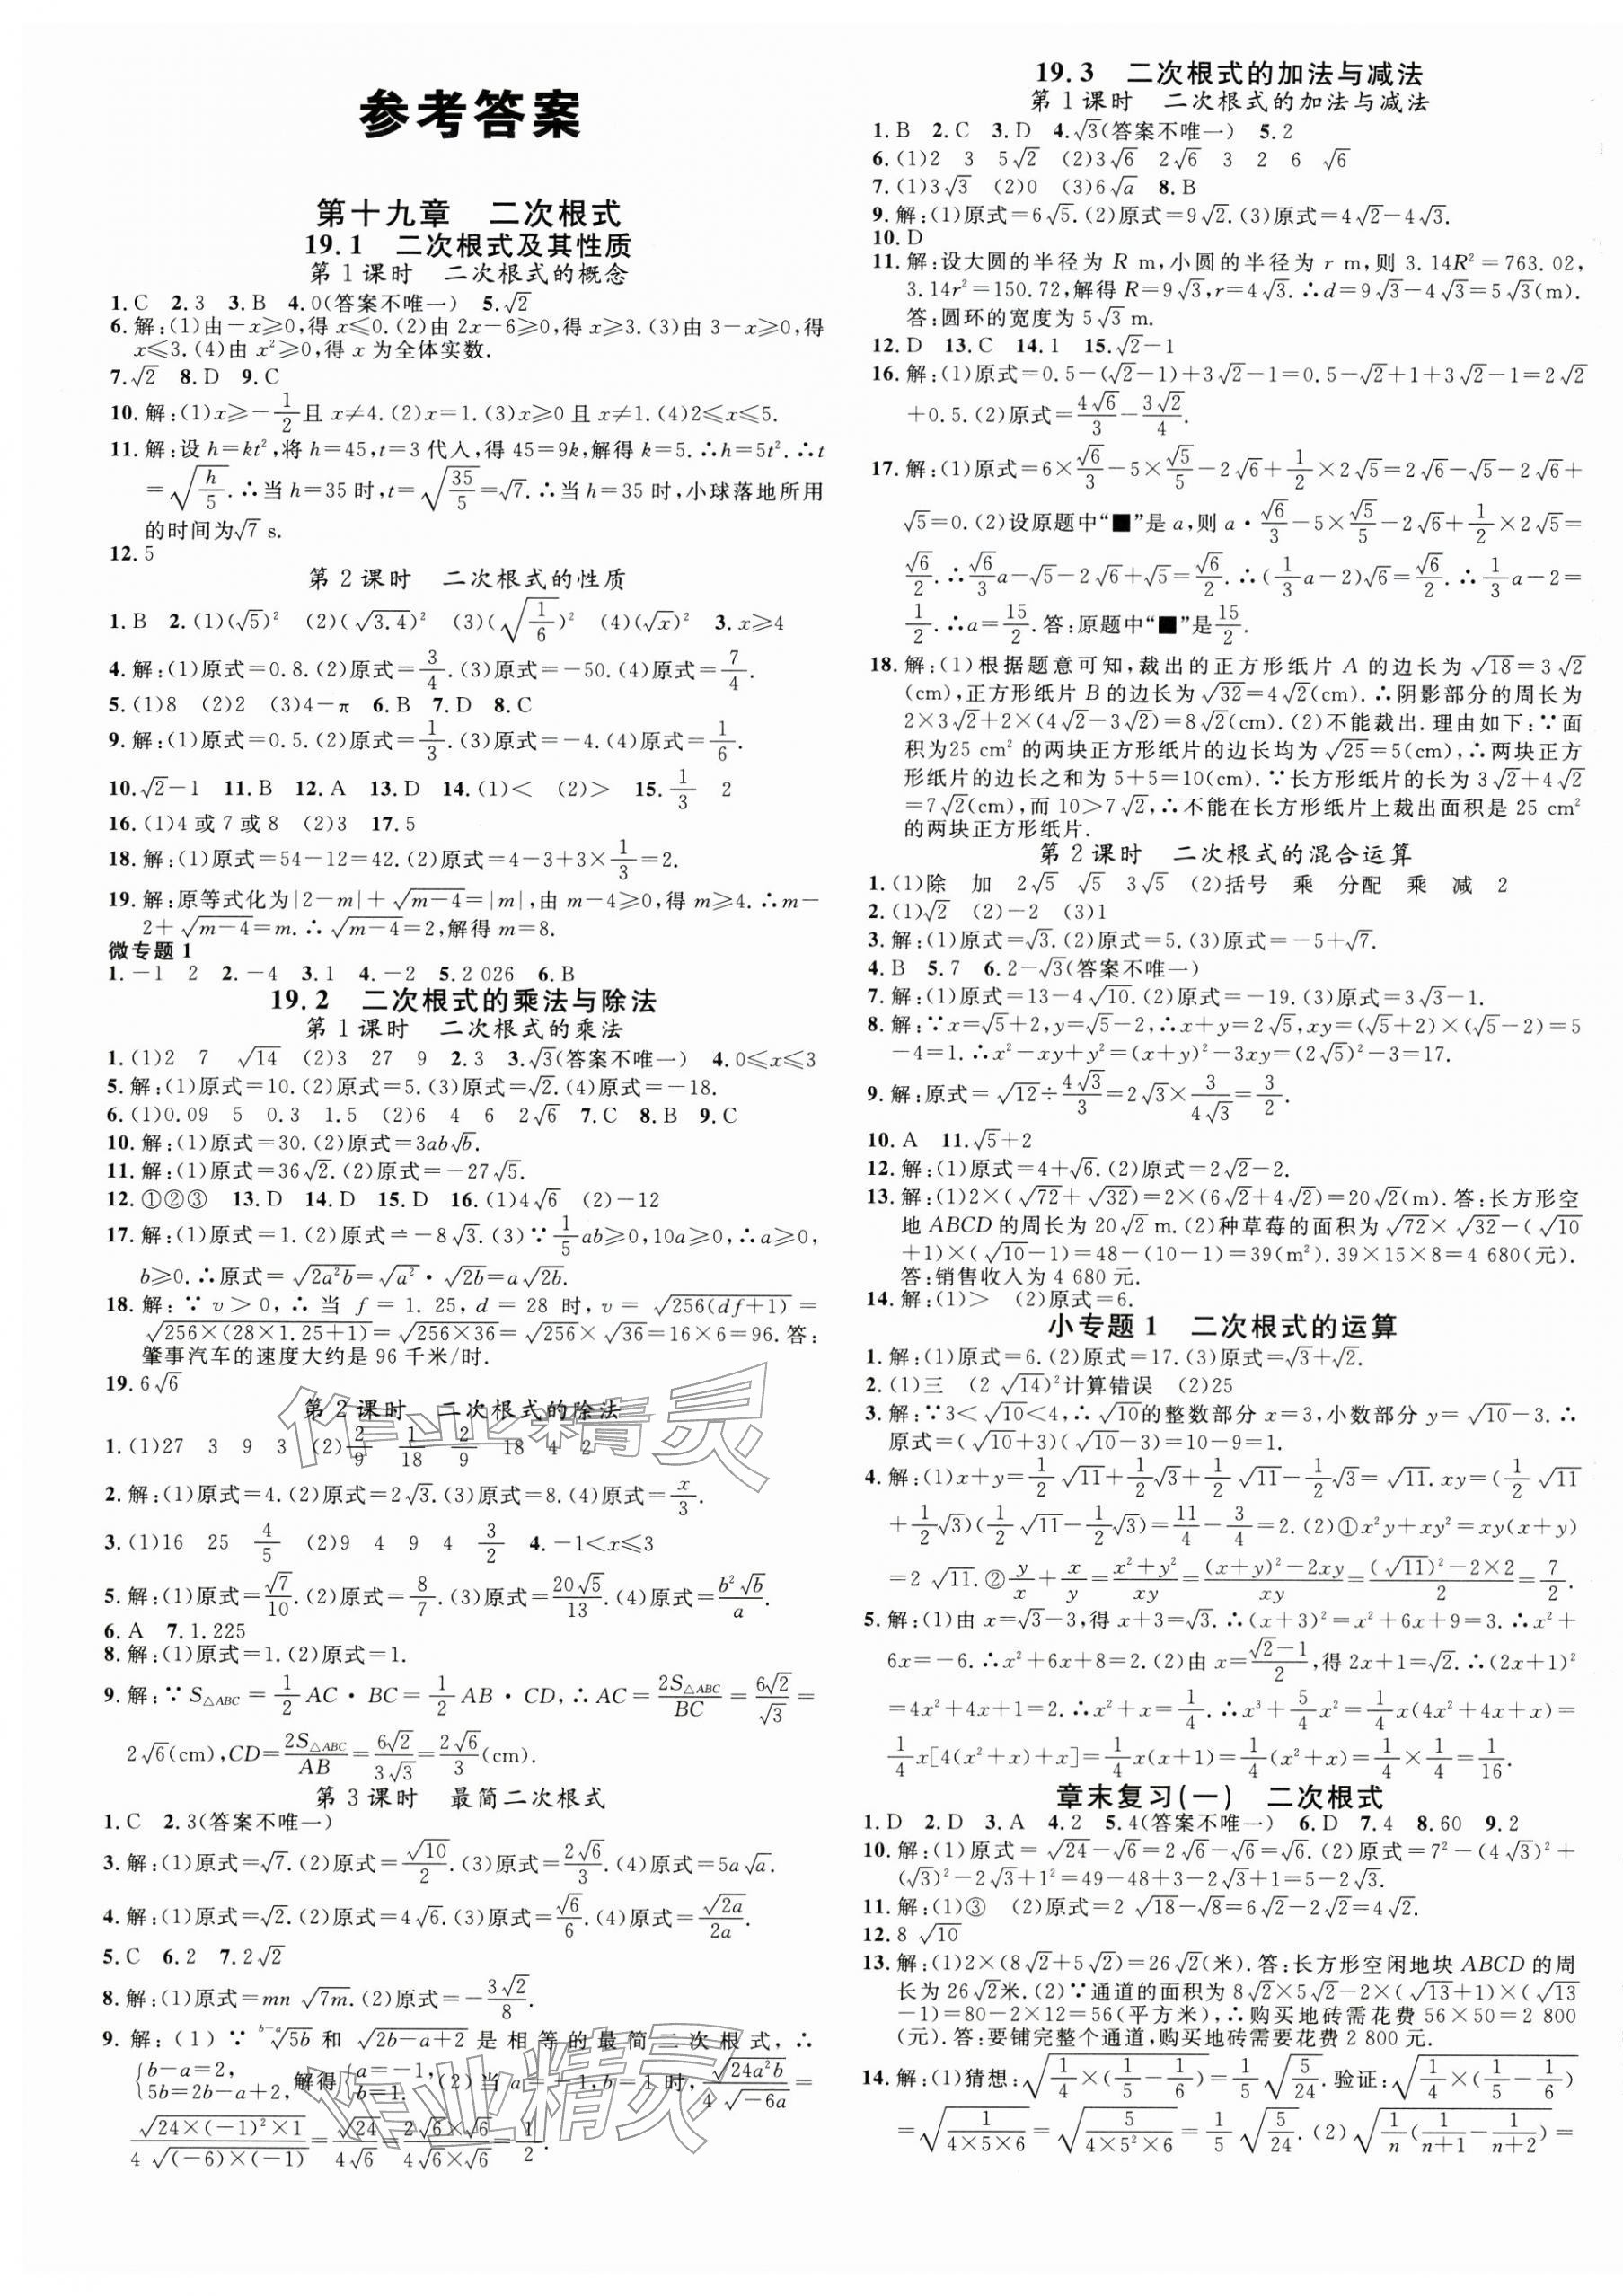 参考答案
第十九章　二次根式
19.1　二次根式及其性质
第1课时　二次根式的概念
1.C　2.3　3.B　4.0(答案不唯一)　5.√2
6.解:(1)由－x≥0,得 x≤0.(2)由 2x－6≥0,得 x≥3.(3)由 3－x≥0,得
x≤3.(4)由 x²≥0,得 x 为全体实数.
7.√2　8.D　9.C
10.解:(1)x≥－1/2且 x≠4.(2)x＝1.(3)x≥0 且 x≠1.(4)2≤x≤5.
11.解:设 h＝kt²,将 h＝45,t＝3 代入,得 45＝9k,解得 k＝5.∴h＝5t².∴t
＝√(h/5).∴当 h＝35 时,t＝√(35/5)＝√7.∴当 h＝35 时,小球落地所用
的时间为√7 s.
12.5
第2课时　二次根式的性质
1.B　2.(1)(√5)²　(2)(√3.4)²　(3)(√(1/6))²　(4)(√x)²　3.x≥4
4.解:(1)原式＝0.8.(2)原式＝3/4.(3)原式＝－50.(4)原式＝7/4.
5.(1)8　(2)2　(3)4－π　6.B　7.D　8.C
9.解:(1)原式＝0.5.(2)原式＝1/3.(3)原式＝－4.(4)原式＝1/6.
10.√2－1　11.B　12.A　13.D　14.(1)<　(2)>　15.1/3　2
16.(1)4 或 7 或 8　(2)3　17.5
18.解:(1)原式＝54－12＝42.(2)原式＝4－3＋3×1/3＝2.
19.解:原等式化为|2－m|＋√(m－4)＝|m|,由 m－4≥0,得 m≥4.∴m－
2＋√(m－4)＝m.∴√(m－4)＝2,解得 m＝8.
微专题1
1.－1　2　2.－4　3.1　4.－2　5.2 026　6.B
19.2　二次根式的乘法与除法
第1课时　二次根式的乘法
1.(1)2　7　√14　(2)3　27　9　2.3　3.√3(答案不唯一)　4.0≤x≤3
5.解:(1)原式＝10.(2)原式＝5.(3)原式＝√2.(4)原式＝－18.
6.(1)0.09　5　0.3　1.5　(2)6　4　6　2√6　7.C　8.B　9.C
10.解:(1)原式＝30.(2)原式＝3ab√b.
11.解:(1)原式＝36√2.(2)原式＝－27√5.
12.①②③　13.D　14.D　15.D　16.(1)4√6　(2)－12
17.解:(1)原式＝1.(2)原式＝－8√3.(3)∵1/5ab≥0,10a≥0,∴a≥0,
b≥0.∴原式＝√(2a²b)＝√a²·√(2b)＝a√(2b).
18.解:∵v＞0,∴当 f＝1.25,d＝28 时,v＝√(256(df＋1))＝
√(256×(28×1.25＋1))＝√(256×36)＝√256×√36＝16×6＝96.答:
肇事汽车的速度大约是 96 千米/时.
19.6√6
第2课时　二次根式的除法
1.(1)27　3　9　3　(2)2/9　1/18　2/9　18　4　2
2.解:(1)原式＝4.(2)原式＝2√3.(3)原式＝8.(4)原式＝x/3.
3.(1)16　25　4/5　(2)9　4　9　4　3/2　4.－1<x≤3
5.解:(1)原式＝√7/10.(2)原式＝8/7.(3)原式＝20√5/13.(4)原式＝b²√b/a.
6.A　7.1.225
8.解:(1)原式＝1.(2)原式＝1.
9.解:∵S△ABC＝1/2 AC·BC＝1/2 AB·CD,∴AC＝2S△ABC/BC＝6√2/√3＝
2√6(cm),CD＝2S△ABC/AB＝6√2/3√3＝2√6/3(cm).
第3课时　最简二次根式
1.C　2.3(答案不唯一)
3.解:(1)原式＝√7.(2)原式＝√10/2.(3)原式＝2√6/3.(4)原式＝5a√a.
4.解:(1)原式＝√2.(2)原式＝4√6.(3)原式＝√6/6.(4)原式＝√(2a)/2a.
5.C　6.2　7.2√2
8.解:(1)原式＝mn√(7m).(2)原式＝－3√2/8.
9.解:(1)∵ᵇ⁻ᵃ√(5b)和√(2b－a＋2)是相等的最简二次根式,∴
{b－a＝2, 5b＝2b－a＋2, 解得{a＝－1, b＝1.(2)当 a＝－1,b＝1 时,√(24a²b)/4√(－6a)＝
√(24×(－1)²×1)/4√((－6)×(－1))＝√24/4√6＝2√6×√6/4√6×√6＝1/2.
19.3　二次根式的加法与减法
第1课时　二次根式的加法与减法
1.B　2.C　3.D　4.√3(答案不唯一)　5.2
6.(1)2　3　5√2　(2)3√6　2√6　3　2　6　√6
7.(1)3√3　(2)0　(3)6√a　8.B
9.解:(1)原式＝6√5.(2)原式＝9√2.(3)原式＝4√2－4√3.
10.D
11.解:设大圆的半径为 R m,小圆的半径为 r m,则 3.14R²＝763.02,
3.14r²＝150.72,解得 R＝9√3,r＝4√3.∴d＝9√3－4√3＝5√3(m).
答:圆环的宽度为 5√3 m.
12.D　13.C　14.1　15.√2－1
16.解:(1)原式＝0.5－(√2－1)＋3√2－1＝0.5－√2＋1＋3√2－1＝2√2
＋0.5.(2)原式＝4√6/3－3√2/4.
17.解:(1)原式＝6×√6/3－5×√5/5－2√6＋1/2×2√5＝2√6－√5－2√6＋
√5＝0.(2)设原题中“■”是 a,则 a·√6/3－5×√5/5－2√6＋1/2×2√5＝
√6/2.∴√6/3a－√5－2√6＋√5＝√6/2.∴(1/3a－2)√6＝√6/2.∴1/3a－2＝
1/2.∴a＝15/2.答:原题中“■”是15/2.
18.解:(1)根据题意可知,裁出的正方形纸片 A 的边长为√18＝3√2
(cm),正方形纸片 B 的边长为√32＝4√2(cm).∴阴影部分的周长为
2×3√2＋2×(4√2－3√2)＝8√2(cm).(2)不能裁出.理由如下:∵面
积为25 cm² 的两块正方形纸片的边长均为√25＝5(cm),∴两块正方
形纸片的边长之和为 5＋5＝10(cm).∵长方形纸片的长为 3√2＋4√2
＝7√2(cm),而 10>7√2,∴不能在长方形纸片上裁出面积是 25 cm²
的两块正方形纸片.
第2课时　二次根式的混合运算
1.(1)除　加　2√5　√5　3√5　(2)括号　乘　分配　乘　减　2
2.(1)√2　(2)－2　(3)1
3.解:(1)原式＝√3.(2)原式＝5.(3)原式＝－5＋√7.
4.B　5.7　6.2－√3(答案不唯一)
7.解:(1)原式＝13－4√10.(2)原式＝－19.(3)原式＝3√3－1.
8.解:∵x＝√5＋2,y＝√5－2,∴x＋y＝2√5,xy＝(√5＋2)×(√5－2)＝5
－4＝1.∴x²－xy＋y²＝(x＋y)²－3xy＝(2√5)²－3＝17.
9.解:原式＝√12÷4√3/3＝2√3×3/4√3＝3/2.
10.A　11.√5＋2
12.解:(1)原式＝4＋√6.(2)原式＝2√2－2.
13.解:(1)2×(√72＋√32)＝2×(6√2＋4√2)＝20√2(m).答:长方形空
地 ABCD 的周长为 20√2 m.(2)种草莓的面积为√72×√32－(√10
＋1)×(√10－1)＝48－(10－1)＝39(m²).39×15×8＝4 680(元).
答:销售收入为 4 680 元.
14.解:(1)>　(2)原式＝6.
小专题1　二次根式的运算
1.解:(1)原式＝6.(2)原式＝17.(3)原式＝√3＋√2.
2.(1)三　(2√14)²计算错误　(2)25
3.解:∵3<√10<4,∴√10的整数部分 x＝3,小数部分 y＝√10－3.∴
原式＝(√10＋3)(√10－3)＝10－9＝1.
4.解:(1)x＋y＝1/2√11＋1/2√3＋1/2√11－1/2√3＝√11.xy＝(1/2√11
＋1/2√3)(1/2√11－1/2√3)＝11/4－3/4＝2.(2)①x²y＋xy²＝xy(x＋y)
＝2√11.②y/x＋x/y＝(x²＋y²)/xy＝((x＋y)²－2xy)/xy＝((√11)²－2×2)/2＝7/2.
5.解:(1)由 x＝√3－3,得 x＋3＝√3.∴(x＋3)²＝x²＋6x＋9＝3.∴x²＋
6x＝－6.∴x²＋6x＋8＝2.(2)由 x＝(√2－1)/2,得 2x＋1＝√2.∴(2x＋1)²
＝4x²＋4x＋1＝2.∴x²＋x＝1/4.∴x³＋5/4x²＝1/4x(4x²＋4x＋x)＝
1/4x[4(x²＋x)＋x]＝1/4x(x＋1)＝1/4(x²＋x)＝1/4×1/4＝1/16.
章末复习(一)　二次根式
1.D　2.D　3.A　4.2　5.4(答案不唯一)　6.D　7.4　8.60　9.2
10.解:(1)原式＝√24－√6＝2√6－√6＝√6.(2)原式＝7²－(4√3)²＋
(√3)²－2√3＋1²＝49－48＋3－2√3＋1＝5－2√3.
11.解:(1)③　(2)原式＝2√18－√8＝6√2－2√2＝4√2.
12.8√10
13.解:(1)2×(8√2＋5√2)＝26√2(米).答:长方形空闲地块 ABCD 的周
长为 26√2米.(2)∵通道的面积为 8√2×5√2－2×(√13＋1)×(√13
－1)＝80－2×12＝56(平方米),∴购买地砖需花费 56×50＝2 800
(元).答:要铺完整个通道,购买地砖需要花费 2 800 元.
14.解:(1)猜想:√(1/4×(1/5－1/6))＝1/5√(5/24).验证:√(1/4×(1/5－1/6))
＝√(1/(4×5×6))＝√(5/(4×5²×6))＝1/5√(5/24).(2)√(1/n(1/(n＋1)－1/(n＋2)))＝
作业精灵
作业精灵